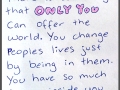 that ONLY YOU
Can offer the
world. You change
Peoples lives just
by being in them.
You have so much
inside you